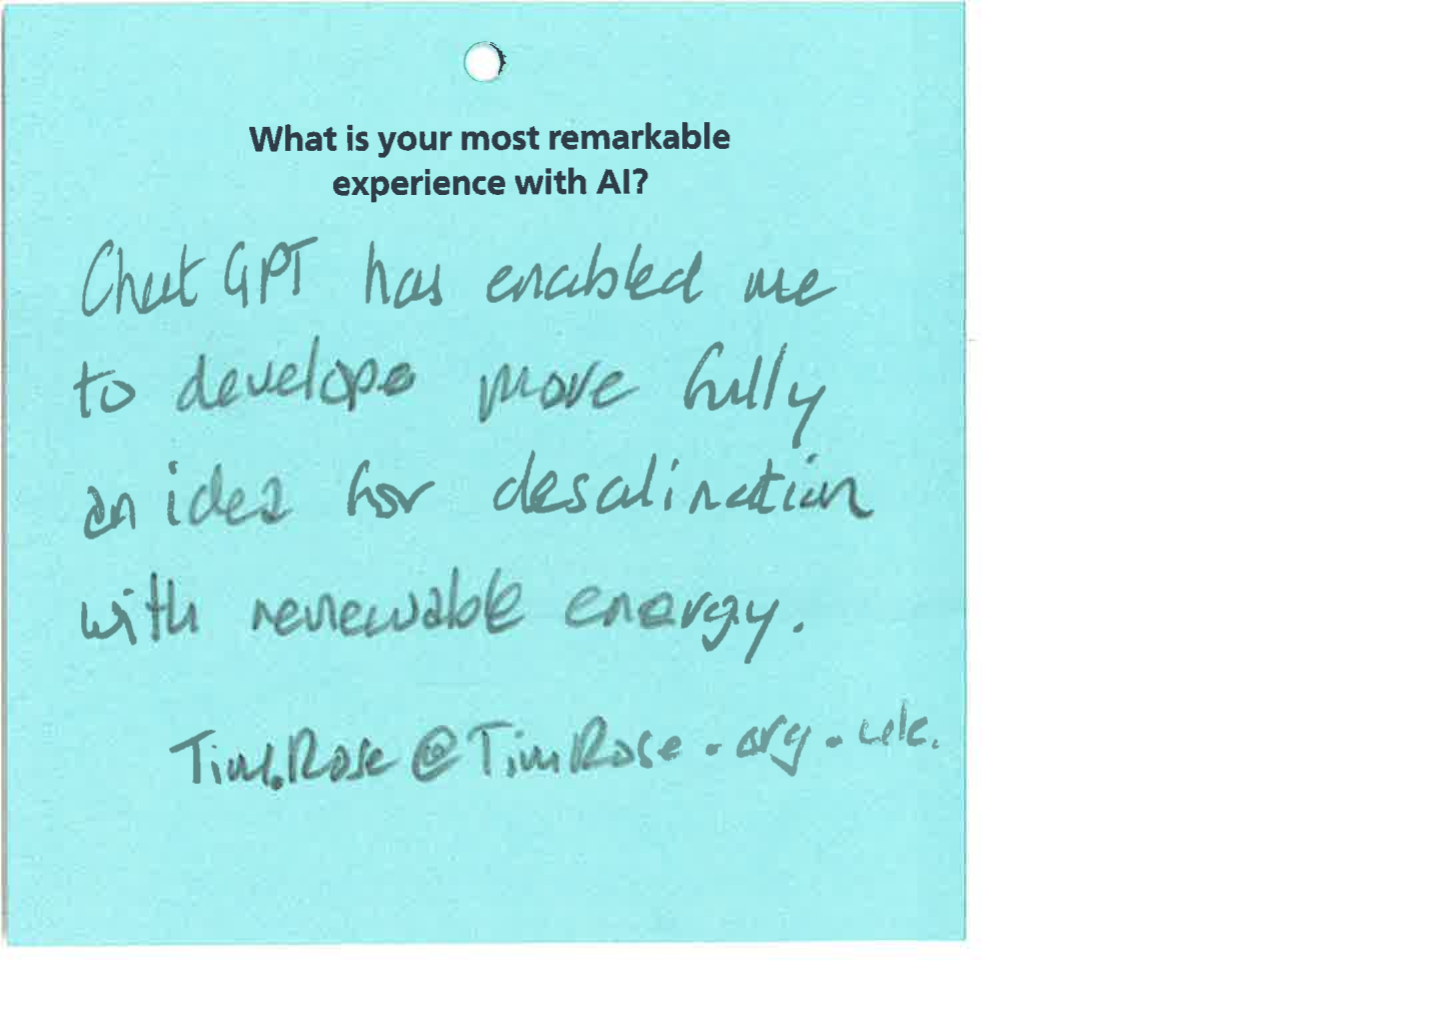 What is your most remarkable
experience with AI?
Chat GPT has enabled me
to develope more fully
an idea for desalination
with renewable energy.
Tim.Rose@TimRose.org.uk.